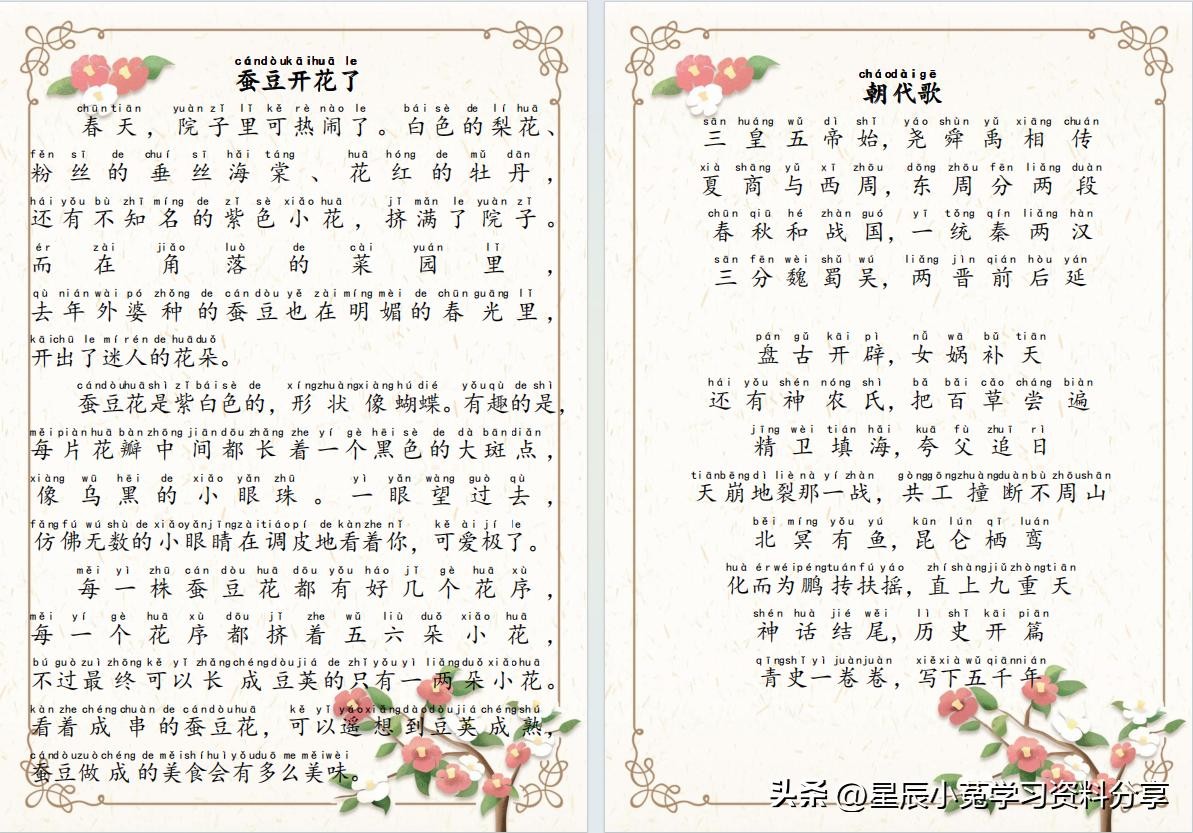 cándòukāihuā le
蚕豆开花了
chūntiān yuàn zǐ lǐ kě rè nào le bái sè de lí huā
春天，院子里可热闹了。白色的梨花、
fěn sī de chuí sī hǎi táng huā hóng de mǔ dān
粉丝的垂丝海棠、花红的牡丹，
hái yǒu bù zhī míng de zǐ sè xiǎo huā jǐ mǎn le yuàn zǐ
还有不知名的紫色小花，挤满了院子。
ér zài jiǎo luò de cài yuán lǐ
而在角落的菜园里，
qù nián wài pó zhǒng de cán dòu yě zài míng mèi de chūn guāng lǐ
去年外婆种的蚕豆也在明媚的春光里，
kāi chū le mí rén de huā duǒ
开出了迷人的花朵。
cán dòu huā shì zǐ bái sè de xíng zhuàng xiàng hú dié yǒu qù de shì
蚕豆花是紫白色的，形状像蝴蝶。有趣的是，
měi piàn huā bàn zhōng jiān dōu zhǎng zhe yí gè hēi sè de dà bān diǎn
每片花瓣中间都长着一个黑色的大斑点，
xiàng wū hēi de xiǎo yǎn zhū yì yǎn wàng guò qù
像乌黑的小眼珠。一眼望过去，
fǎng fú wú shù de xiǎo yǎn jīng zài tiáo pí de kàn zhe nǐ kě ài jí le
仿佛无数的小眼睛在调皮地看着你，可爱极了。
měi yì zhū cán dòu huā dōu yǒu hǎo jǐ gè huā xù
每一株蚕豆花都有好几个花序，
měi yí gè huā xù dōu jǐ zhe wǔ liù duǒ xiǎo huā
每一个花序都挤着五六朵小花，
bú guò zuì zhōng kě yǐ zhǎng chéng dòu jiá de zhǐ yǒu yì liǎng duǒ xiǎo huā
不过最终可以长成豆荚的只有一两朵小花。
kàn zhe chéng chuàn de cán dòu huā kě yǐ yáo xiǎng dào dòu jiá chéng shú
看着成串的蚕豆花，可以遥想到豆荚成熟，
cán dòu zuò chéng de měi shí huì yǒu duō me měi wèi
蚕豆做成的美食会有多么美味。
cháo dài gē
朝代歌
sān huáng wǔ dì shǐ yáo shùn yǔ xiāng chuán
三皇五帝始，尧舜禹相传
xià shāng yǔ xī zhōu dōng zhōu fēn liǎng duàn
夏商与西周，东周分两段
chūn qiū hé zhàn guó yī tǒng qín liǎng hàn
春秋和战国，一统秦两汉
sān fēn wèi shǔ wú liǎng jìn qián hòu yán
三分魏蜀吴，两晋前后延
pán gǔ kāi pì nǚ wā bǔ tiān
盘古开辟，女娲补天
hái yǒu shén nóng shì bǎ bǎi cǎo cháng biàn
还有神农氏，把百草尝遍
jīng wèi tián hǎi kuā fù zhuī rì
精卫填海，夸父追日
tiān bēng dì liè nà yí zhàn gòng gōng zhuàng duàn bù zhōu shān
天崩地裂那一战，共工撞断不周山
běi míng yǒu yú kūn lún qī luán
北冥有鱼，昆仑栖鸾
huà ér wéi péng tuán fú yáo zhí shàng jiǔ zhòng tiān
化而为鹏抟扶摇，直上九重天
shén huà jié wěi lì shǐ kāi piān
神话结尾，历史开篇
qīng shǐ yì juàn juàn xiě xià wǔ qiān nián
青史一卷卷，写下五千年
头条 @星辰小菟学习资料分享